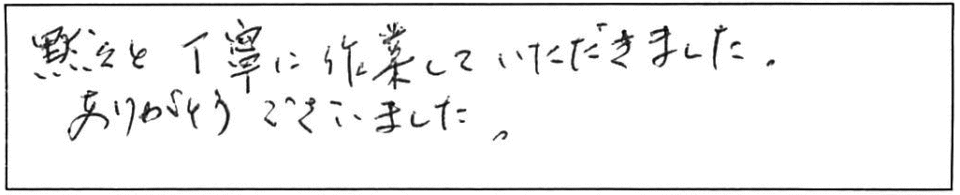 黙々と丁寧に作業していただきました。
ありがとうございました。